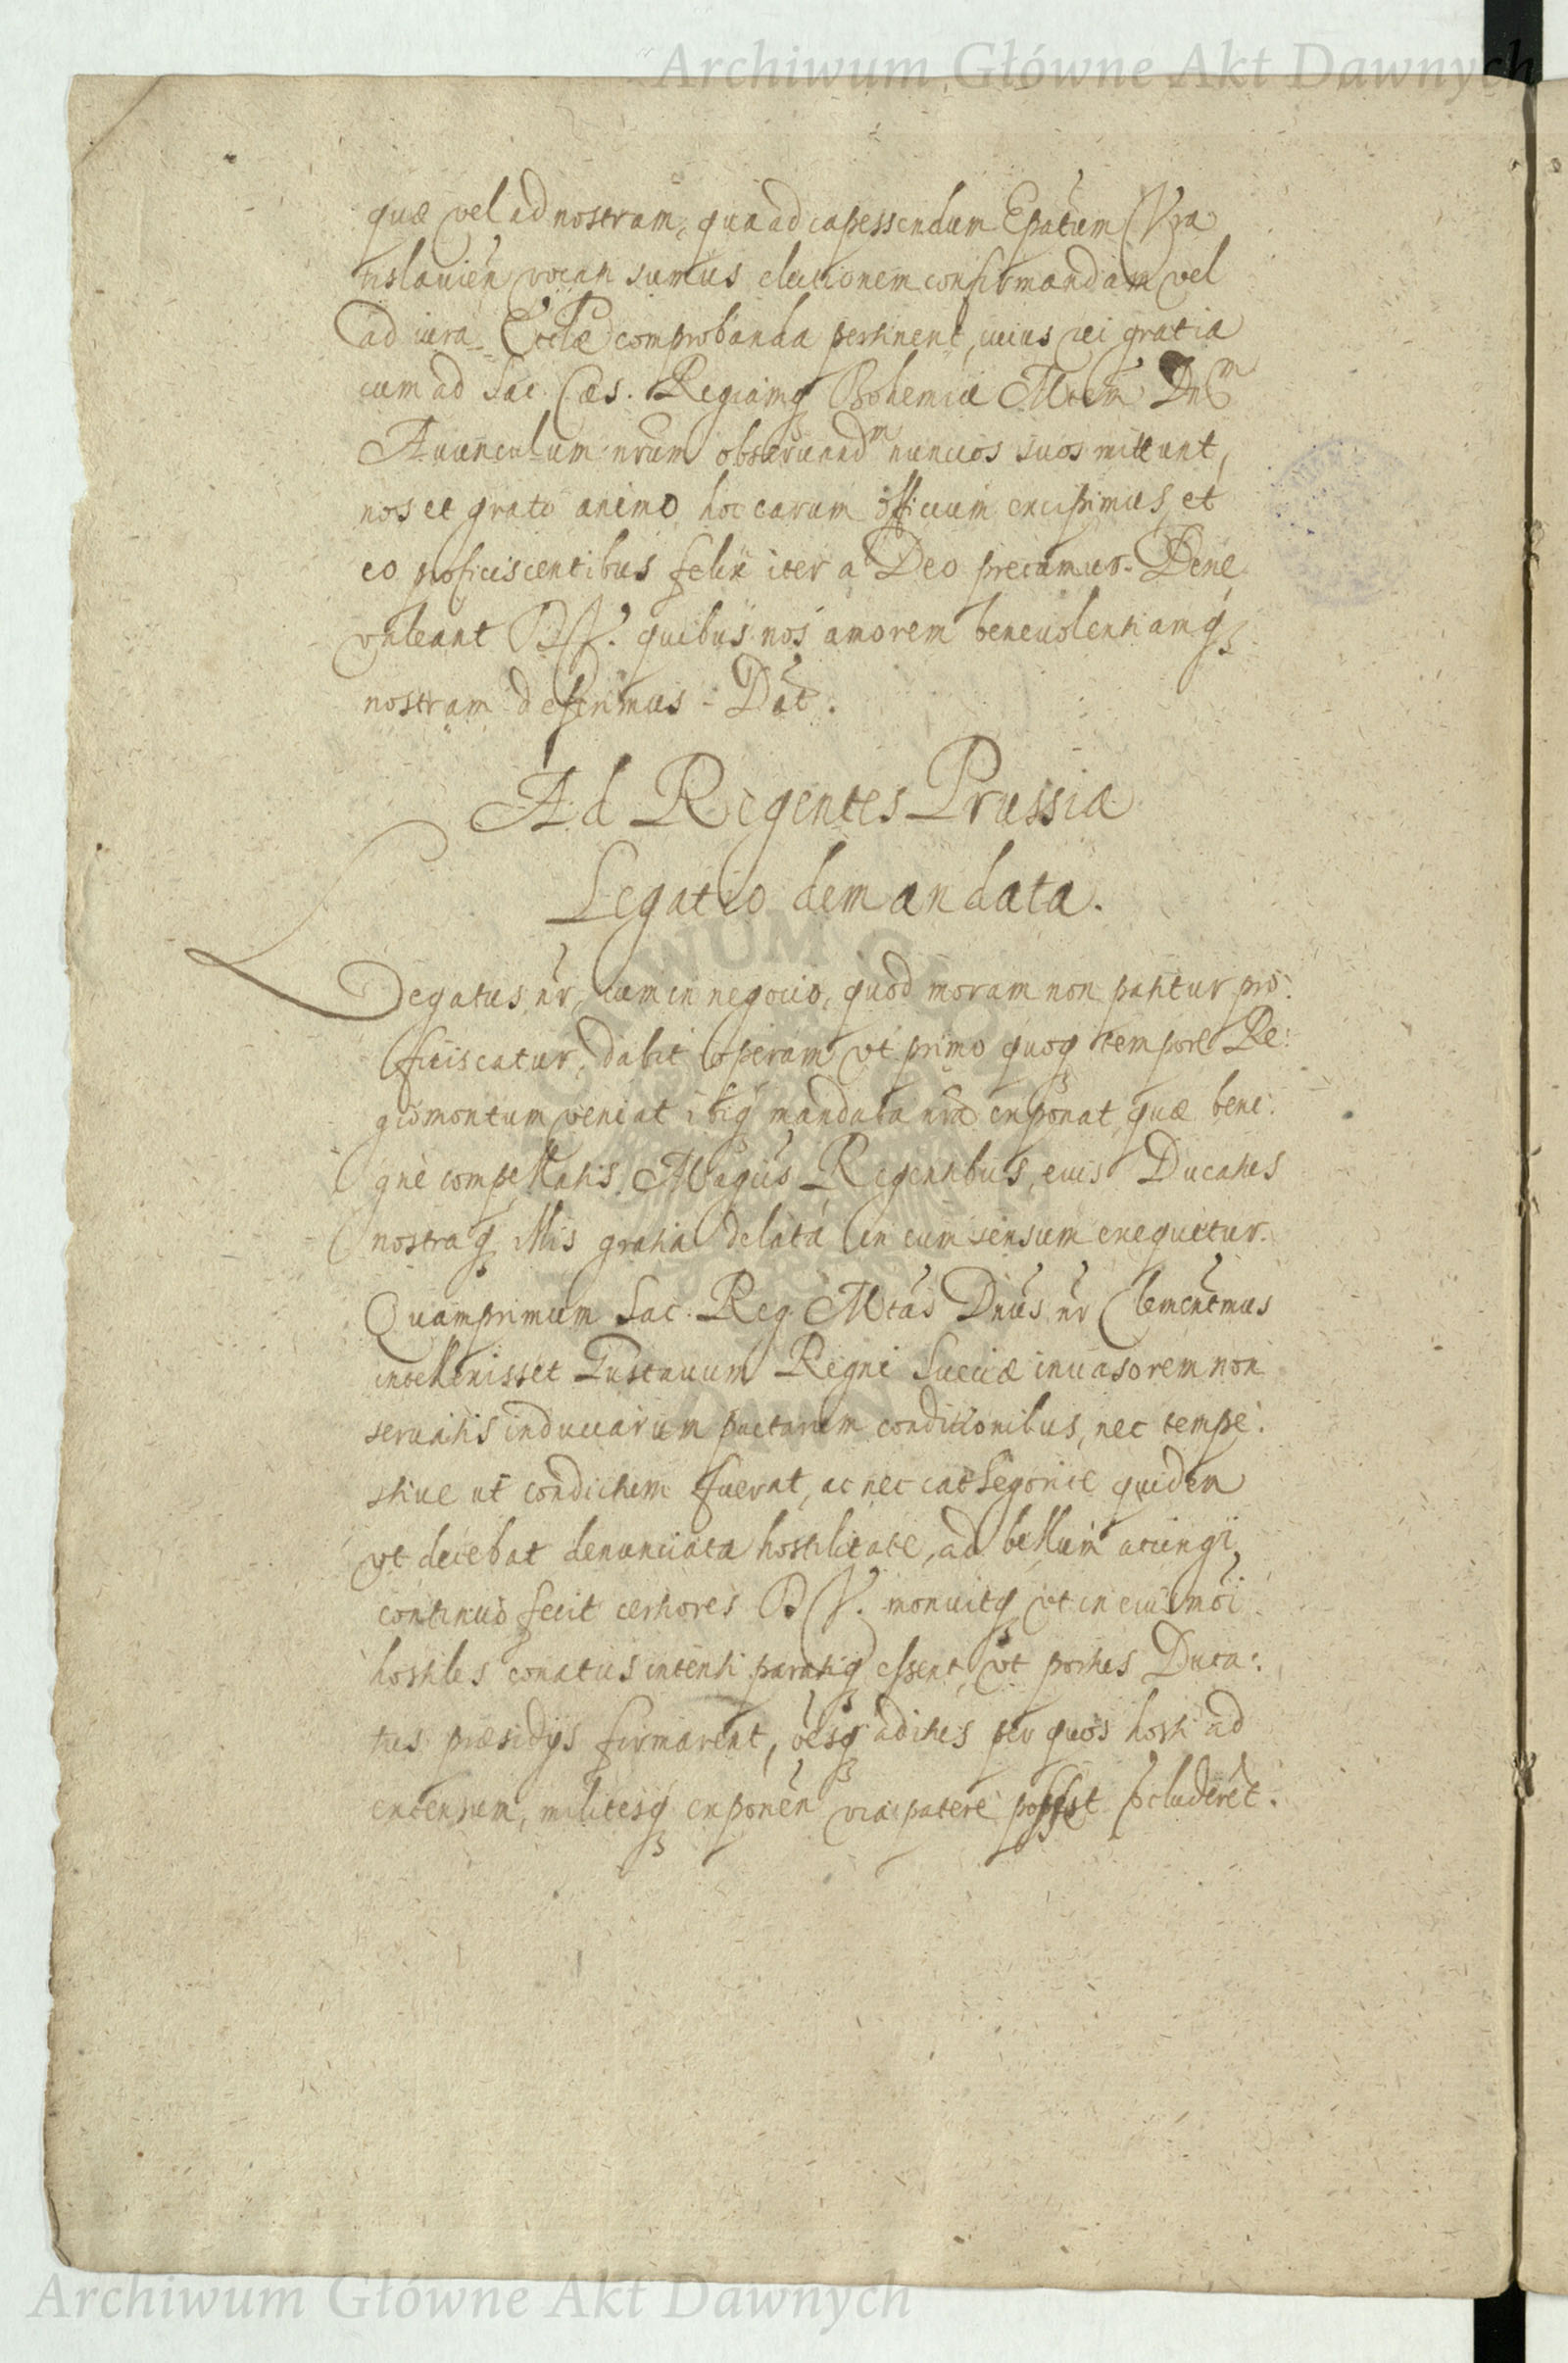 Archiwum Główne Akt Dawnych
quæ vel ad nostram, qua ad capessendum Epatum Vra
tislauien vocati sumus electionem confirmandam vel
ad iura Eccliæ comprobanda pertinent, cuius rei gratia
cum ad Sac. Cæs. Regiamq Bohemiæ Mtem Dnm
Auunculum nrum obseruandm nuncios suos mittunt,
nos et grato animo hoc earum officium excipimus, et
eo proficiscentibus felix iter a Deo precamur. Bene
valeant DV. quibus nos amorem beneuolentiamq
nostram deferimus. Dat.
Ad Regentes Prussiæ
Legatio demandata.
Legatus nr, cum in negocio, quod moram non patitur pro:
ficiscatur, dabit operam vt primo quoq tempore Re:
giomontum veniat ibiq mandata nra exponat, quæ beni:
gnè compellatis Magcis Regentibus, eius Ducatus
nostraq illis gratia delata in eum sensum exequetur.
Quamprimum Sac. Reg. Mtas Dnus nr Clementmus
intellexisset Gustauum Regni Sueciæ inuasorem non
seruatis induciarum pactarum conditionibus, nec tempe:
stiue ut condictum fuerat, ac nec cathegorice quidem
vt decebat denunciata hostilitate, ad bellum accingi,
continuò fecit certiores DV. monuitq vt in eiusmoi
hostiles conatus intenti paratiq essent, vt portus Duca:
tus præsidijs firmarent, oesq aditus per quos hosti ad
excensum, militesq exponen via patere posset occluderet.
Archiwum Główne Akt Dawnych